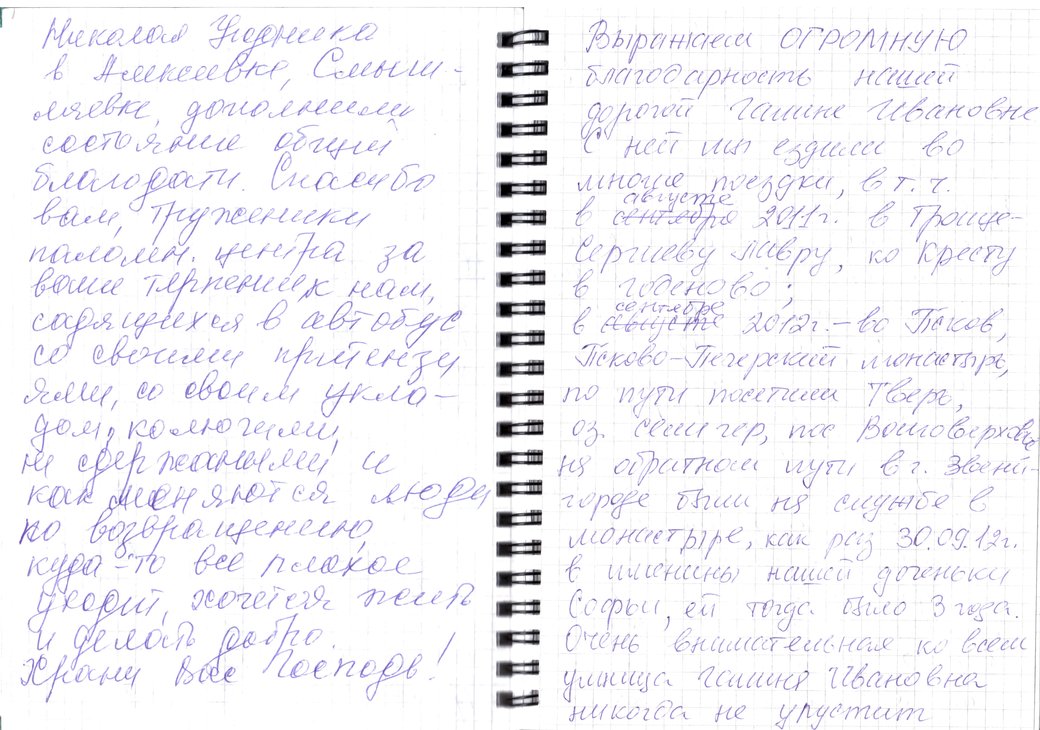 Николая Угодника
в Алексеевке, Смыш-
ляевке, дополнили
состояние общей
благодати. Спасибо
вам, труженики
паломн. центра за
ваше терпение к нам,
садящихся в автобус
со своими претензи
ями, со своим укла-
дом, колючими,
не сдержаными и
как меняются люди
ко возвращению,
куда-то все плохое
уходит, хочется жить
и делать добро.
Храни Вас Господь!
Выражаем ОГРОМНУЮ
благодарность нашей
дорогой Галине Ивановне
С ней мы ездили во
многие поездки, в т.ч.
августе
в сентябре 2011г. в Троице-
Сергиеву Лавру, ко Кресту
в Годеново;
сентябре
в августе 2012г.–во Псков,
Псково-Печерский монастырь,
по пути посетили Тверь,
оз. Селигер, пос Волговерховье
на обратном пути в г. Звени-
городе были на службе в
монастыре, как раз 30.09.12г.
в именины нашей доченьки
Софьи, ей тогда было 3 года.
Очень внимательная ко всем
умница Галина Ивановна
никогда не упустит